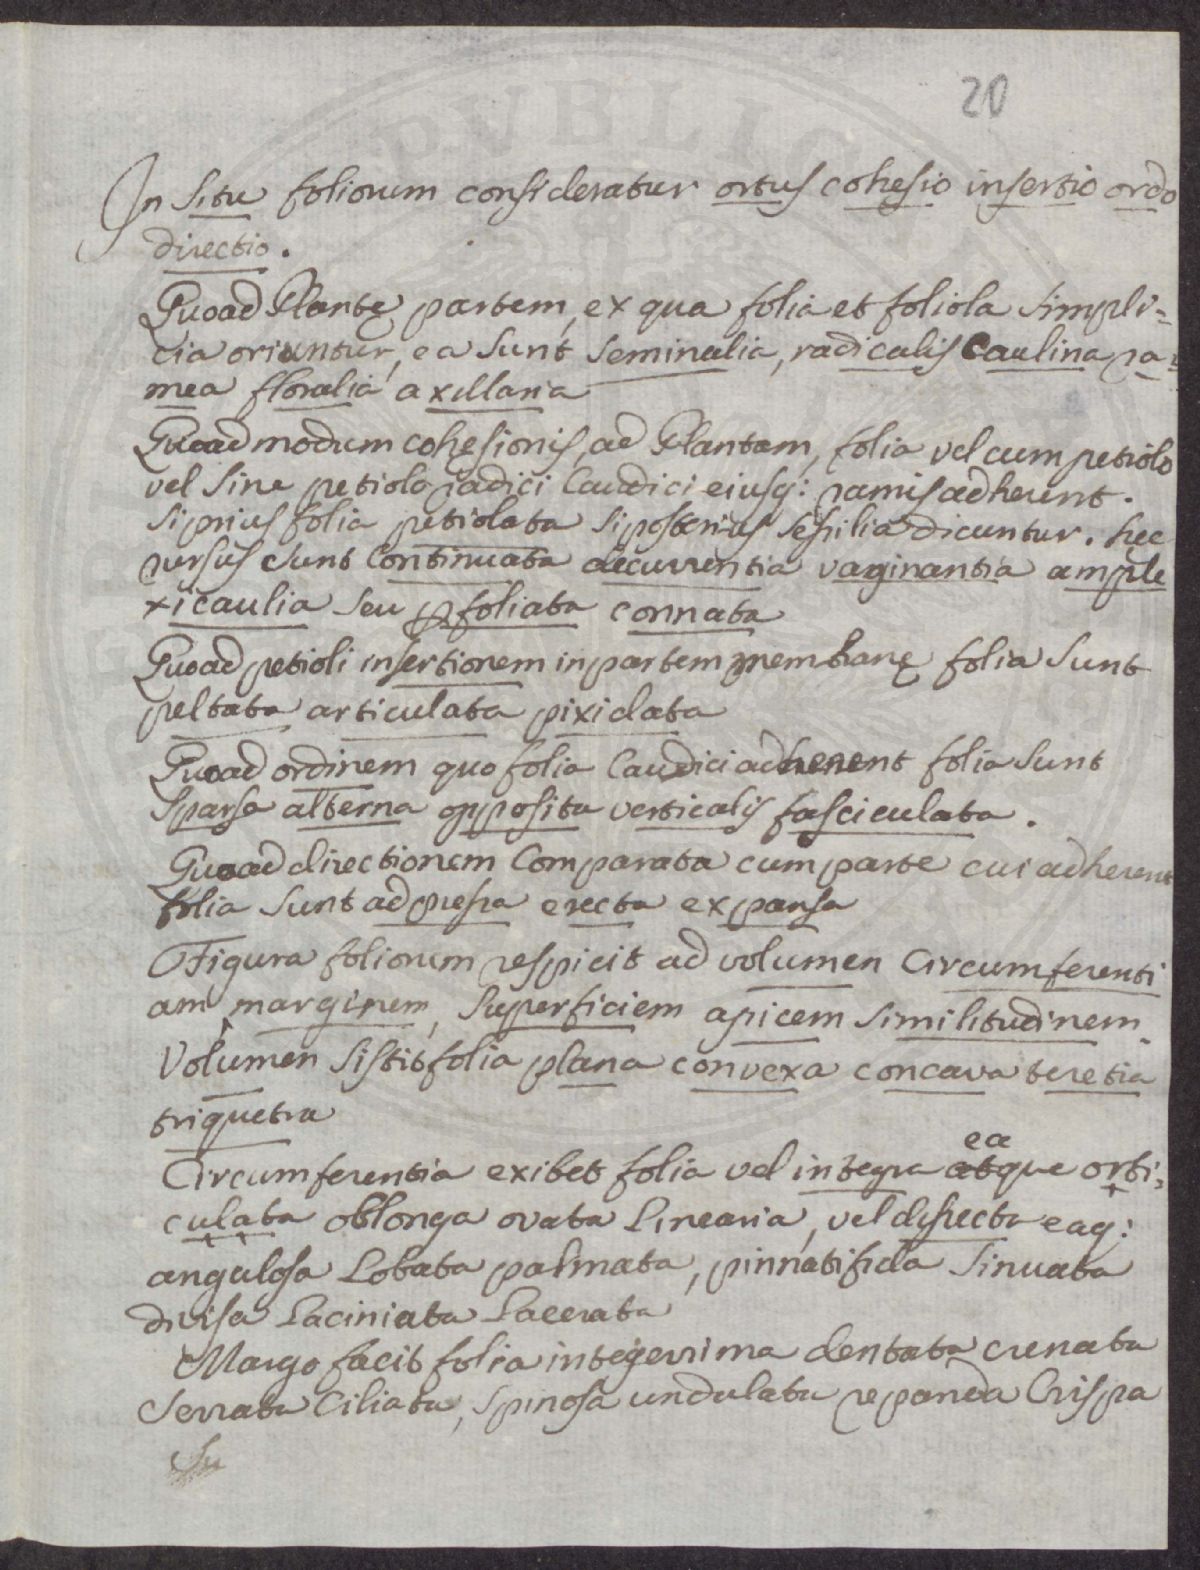 20
In Situ foliorum consideratur ortus cohesio insertio ordo
directio.
Quoad Plantę partem, ex qua folia et foliola simpli=
cia oriuntur, ea sunt seminalia, radicalis caulina ra=
mea floralia axillaria
Quoad modum cohesionis, ad Plantam, folia vel cum petiolo
vel sine petiolo radici Caudici eiusq: ramis adherent.
si prius folia petiolata si posterius sessilia dicuntur. hec
rursus sunt Continuata decurrentia vaginantia ample
xicaulia seu pfoliata connata
Quoad petioli insertionem in partem membranę folia sunt
peltata articulata pixidata
Quoad ordinem quo folia Caudici adherent folia sunt
sparsa alterna opposita verticalis fasciculata.
Quoad directionem Comparata cum parte cui adherent
folia sunt adpressa erecta expansa
Figura foliorum respicit ad volumen Circumferenti
am, marginem, superficiem apicem similitudinem.
Volumen sistit folia plana convexa concava teretia
triquetra
ea
Circumferentia exibet folia vel integra atque orbi=
culata oblonga ovata Linearia, vel dissecta eaq:
angulosa Lobata palmata, pinnatifida sinuata
divisa Laciniata Lacerata
Margo facit folia integerrima dentata crenata
serrata Ciliata, spinosa undulata repanda Crispa
Su
PVBLIC